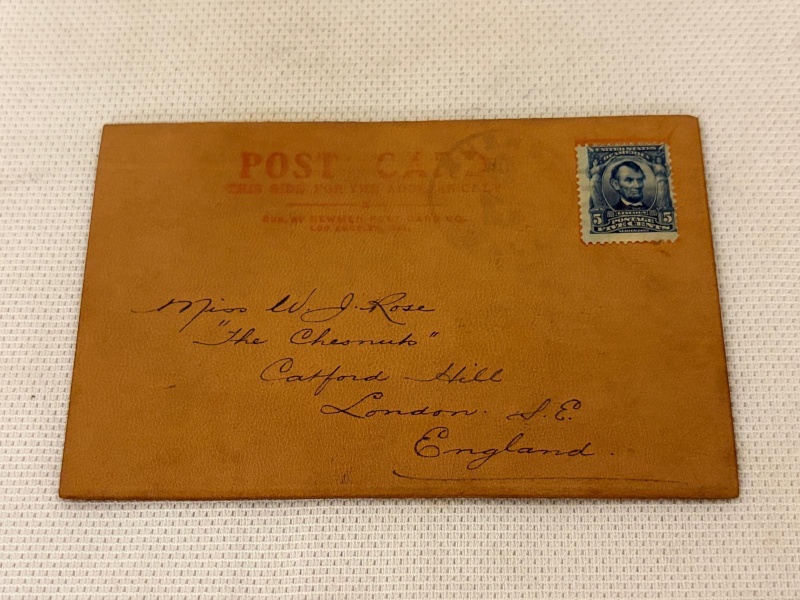 POST CARD
THIS SIDE FOR THE ADDRESS ONLY
NEWMAN POST CARD CO.
LOS ANGELES, CAL.
UNITED STATES
OF AMERICA
LINCOLN
5 POSTAGE 5
FIVE CENTS
Miss W. J. Rose
"The Chesnuts"
Catford Hill
London. S.E.
England.